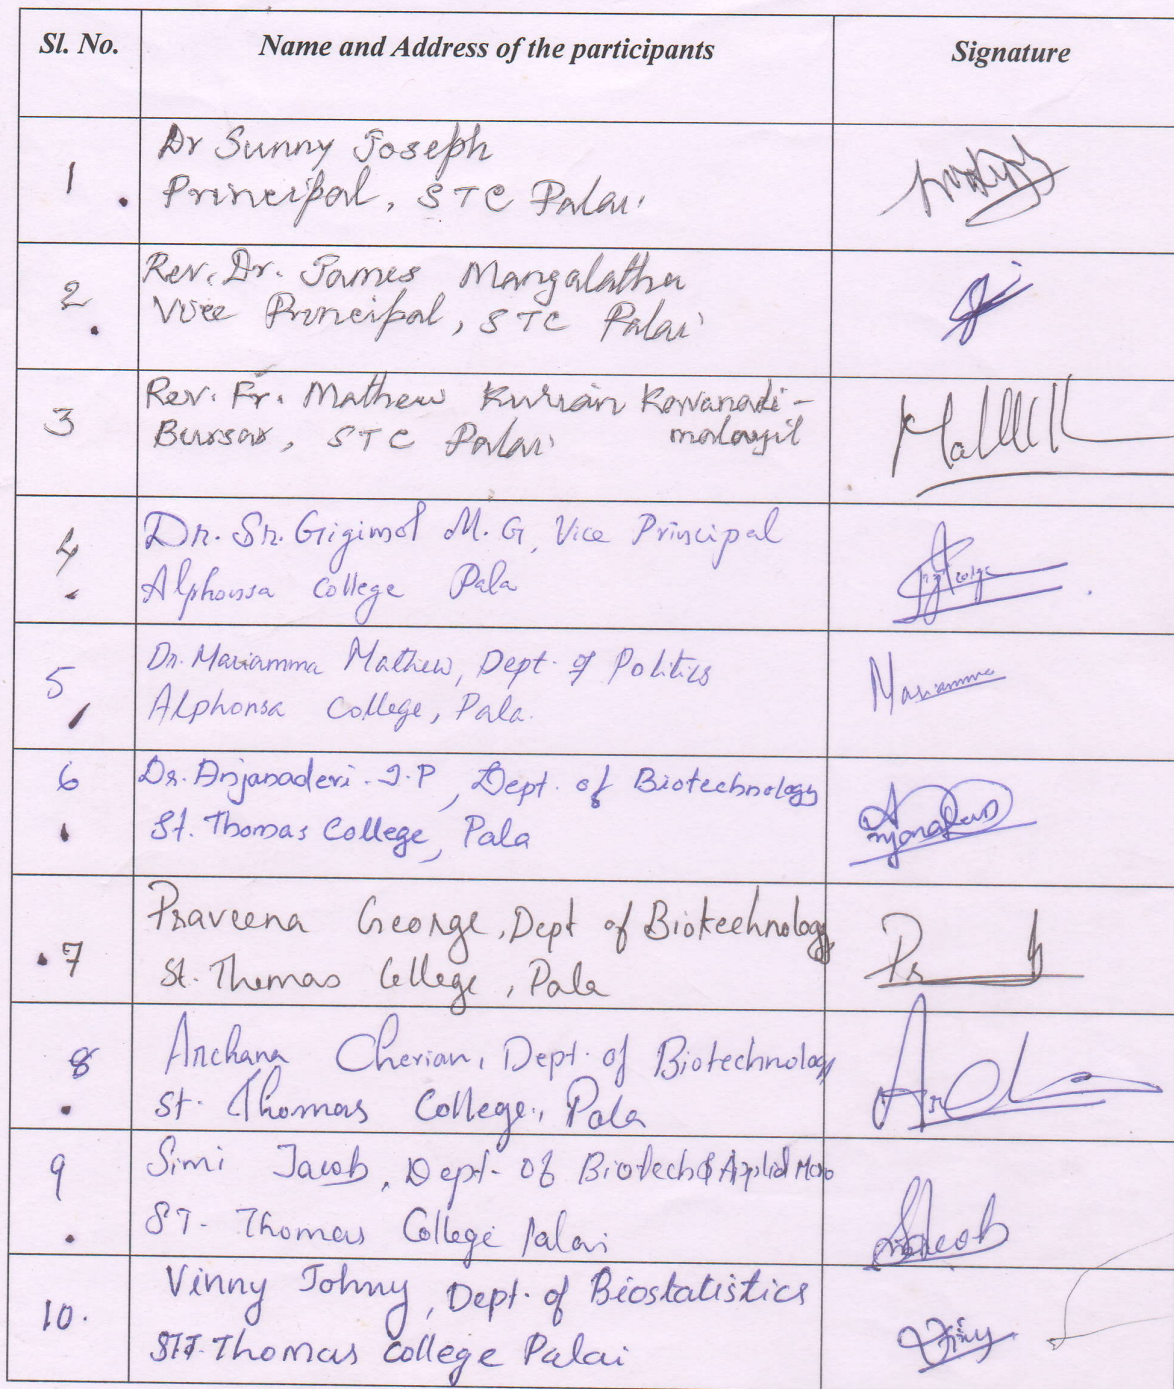 Sl. No. Name and Address of the participants Signature
1. Dr Sunny Joseph
Principal, STC Palai
2. Rev. Dr. James Mangalathu
Vice Principal, STC Palai
3 Rev. Fr. Mathew Kurian
Bursar, STC Palai
4. Dr. Sr. Gigimol M. G, Vice Principal
Alphonsa College Pala
5 Dr. Mariamma Mathew, Dept. of Politics Mariamma
Alphonsa College, Pala.
6. Dr. Anjanadevi. T.P, Dept. of Biotechnology
St. Thomas College, Pala
7 Praveena George, Dept of Biotechnology
St. Thomas College, Pala
8. Archana Cherian, Dept. of Biotechnology
St. Thomas College, Pala
9. Simi Jacob, Dept. of Biotech & Applid Micro
ST. Thomas College Palai
10. Vinny Johny, Dept. of Biostatistics
ST. Thomas College Palai